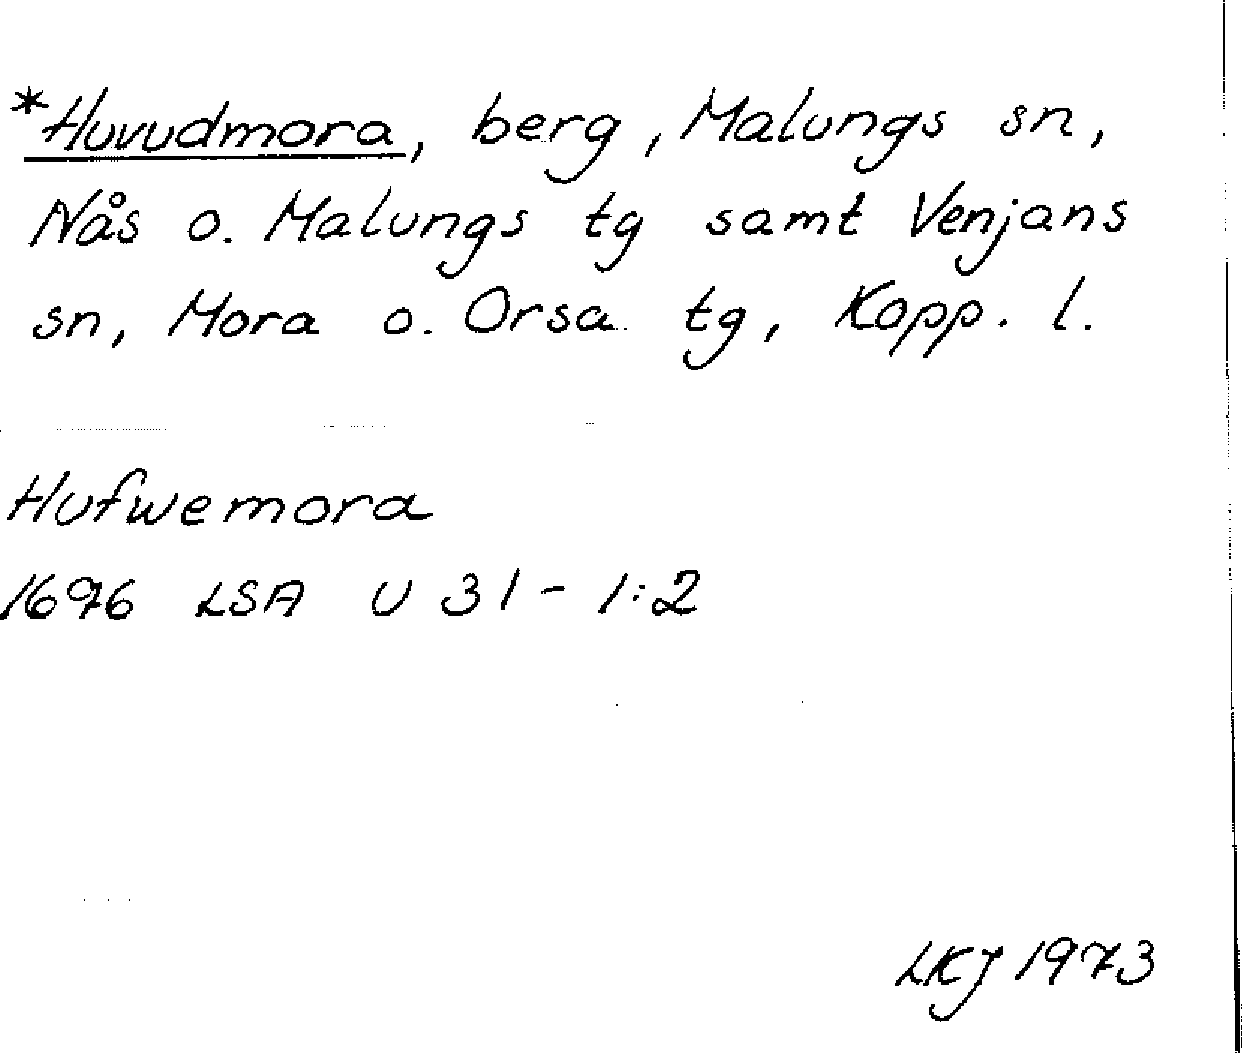 *Huvudmora, berg, Malungs sn,
Nås o. Malungs tg samt Venjans
sn, Mora o. Orsa tg, Kopp. l.
Hufwemora
1696 LSA U 31 - 1:2
LKJ 1973